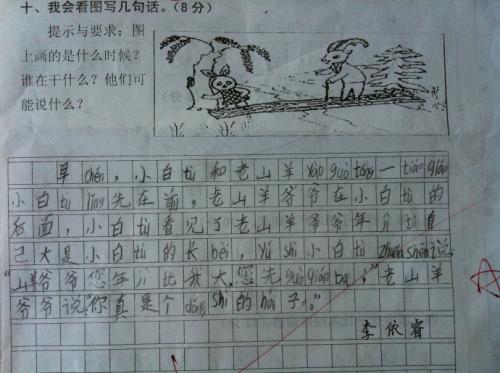 十、我会看图写几句话。(8分)
提示与要求:图
上画的是什么时候?
谁在干什么?他们可
能说什么?
早chén,小白tù和老山羊yào guò tóng一tiáo qiáo
小白tù líng先在前,老山羊爷爷在小白tù的
后面,小白tù看见了老山羊爷爷年 tù自
己大是小白tù的长bèi,yú shì小白tù zhuǎn shēn说:
“山羊爷爷您年 比我大,您先guò qiáo ba,”老山羊
爷爷说:“你真是个dǒng shì的hái子。”
李依睿